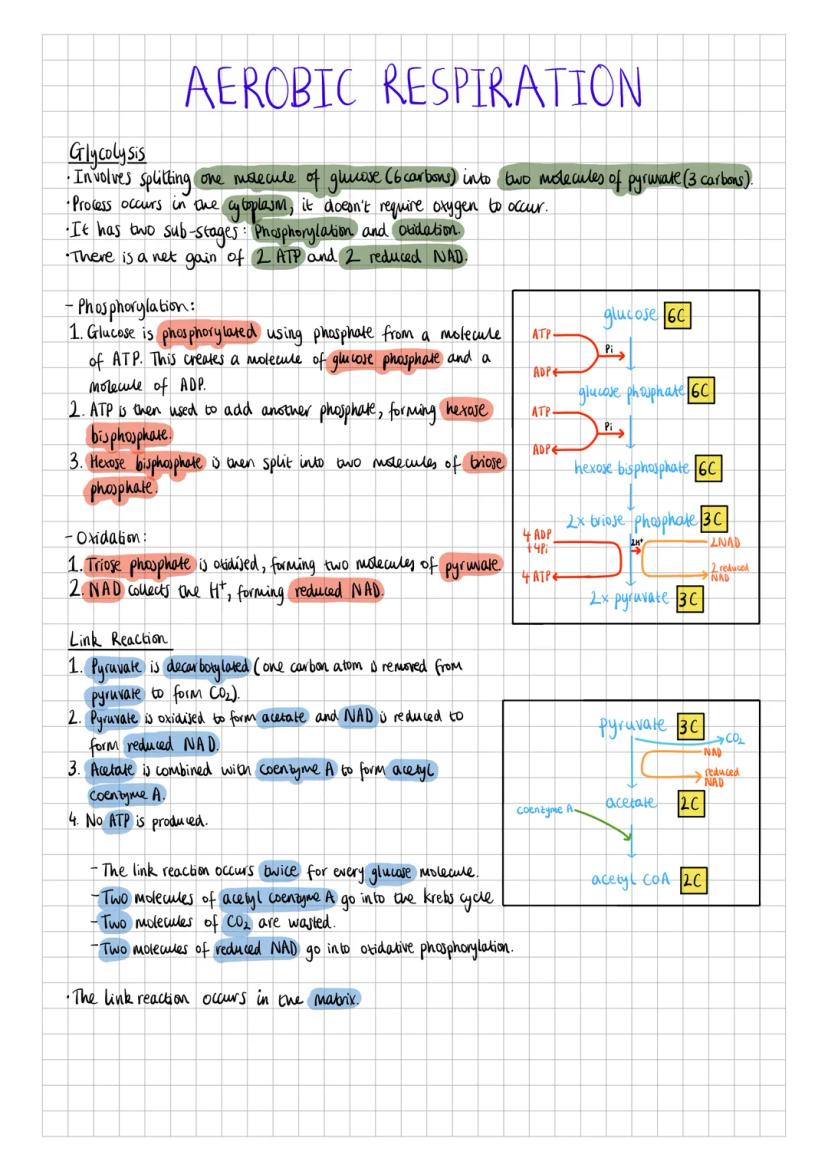 AEROBIC RESPIRATION
Glycolysis
·Involves splitting one molecule of glucose (6 carbons) into two molecules of pyruvate (3 carbons).
·Process occurs in the cytoplasm, it doesn't require oxygen to occur.
·It has two sub-stages: Phosphorylation and oxidation.
·There is a net gain of 2 ATP and 2 reduced NAD.
- Phosphorylation:
1. Glucose is phosphorylated using phosphate from a molecule
of ATP. This creates a molecule of glucose phosphate and a
molecule of ADP.
2. ATP is then used to add another phosphate, forming hexose
bisphosphate.
3. Hexose bisphosphate is then split into two molecules of triose
phosphate.
- Oxidation:
1. Triose phosphate is oxidised, forming two molecules of pyruvate.
2. NAD collects the H⁺, forming reduced NAD.
glucose 6C
ATP
Pi
ADP
glucose phosphate 6C
ATP
Pi
ADP
hexose bisphosphate 6C
2x triose phosphate 3C
4 ADP
+4Pi
2H⁺
2NAD
4 ATP
2 reduced
NAD
2x pyruvate 3C
Link Reaction
1. Pyruvate is decarboxylated (one carbon atom is removed from
pyruvate to form CO₂).
2. Pyruvate is oxidised to form acetate and NAD is reduced to
form reduced NAD.
3. Acetate is combined with coenzyme A to form acetyl
coenzyme A.
4. No ATP is produced.
- The link reaction occurs twice for every glucose molecule.
- Two molecules of acetyl coenzyme A go into the krebs cycle
- Two molecules of CO₂ are wasted.
- Two molecules of reduced NAD go into oxidative phosphorylation.
·The link reaction occurs in the matrix.
pyruvate 3C
CO₂
NAD
reduced
NAD
acetate 2C
coenzyme A
acetyl COA 2C